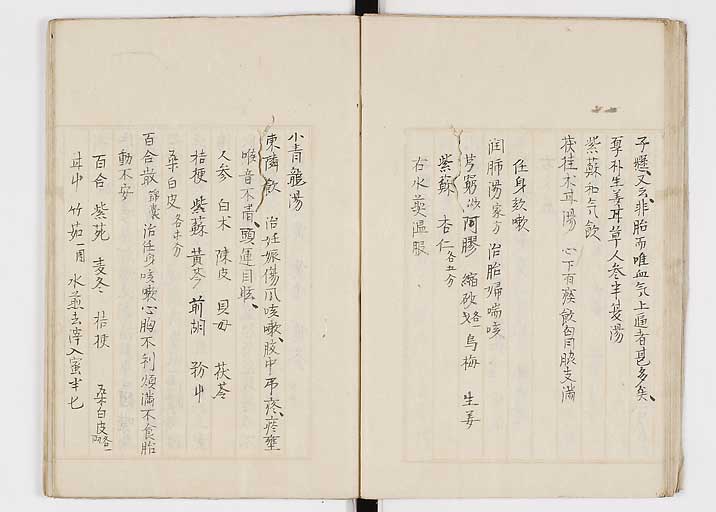 子懸又云非胎而唯血气上逼者甚多矣、
厚朴生姜耳草人参半夏湯
紫蘇和气飲
茯桂木耳湯 心下有痰飲胸脇支満
任身欬嗽
潤肺湯家方 治胎婦喘咳
芎窮 阿膠 縮砂 各一戔 烏梅 生姜
紫蘓 杏仁 各五分
右水煎温服
小青龍湯
東隣飲 治妊娠傷风咳嗽、胶中吊疼、痰壅
喉音不清、頭運目眩、
人参 白朮 陳皮 貝母 茯苓
桔梗 紫蘇 黄芩 前胡 粉屮
桑白皮 各等分
百合散 錦嚢 治任身咳嗽心胸不利煩満不食胎
動不安
百合 紫菀 麦冬 桔梗 桑白皮 各一
耳屮 竹茹 一円 水煎去滓入蜜半匕